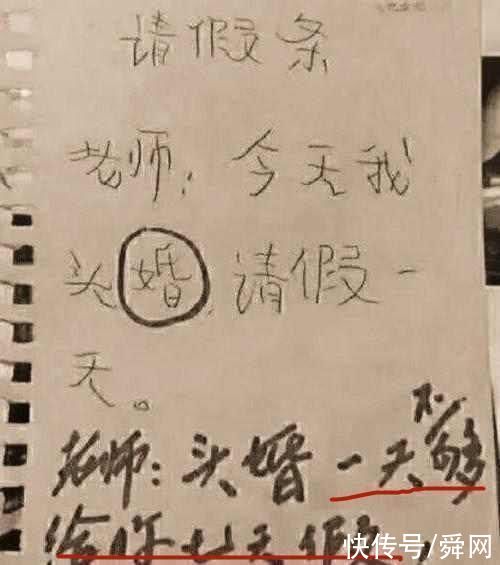 请假条
老师：今天我
头婚，请假一
天。
老师：头婚一天不够
给你七天假
快传号/舜网